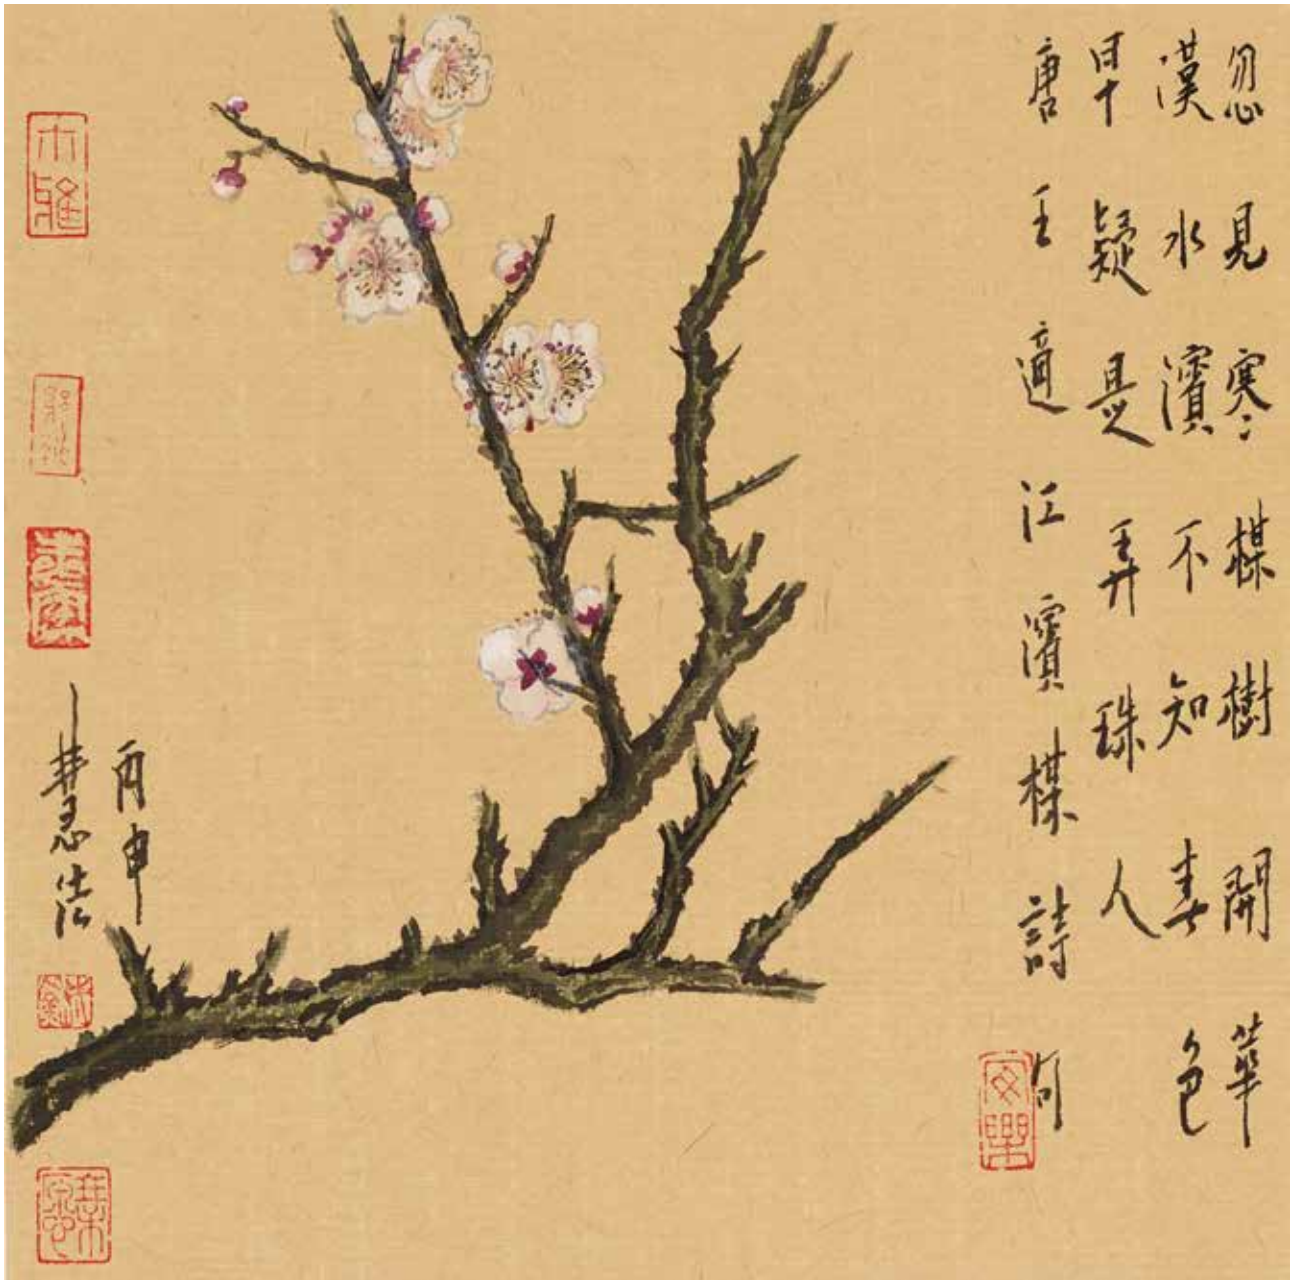 忽見寒楳樹開華
漢水濱不知春色
早疑是弄珠人
唐王適江濱楳詩句
安樂
丙申
大雅